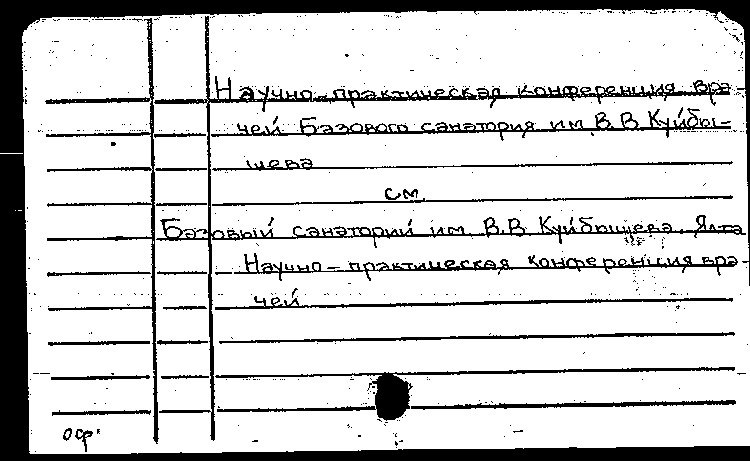 Научно-практическая конференция вра-
чей Базового санатория им. В.В. Куйбы-
шева
см.
Базовый санаторий им. В.В. Куйбышева. Ялта
Научно-практическая конференция вра-
чей